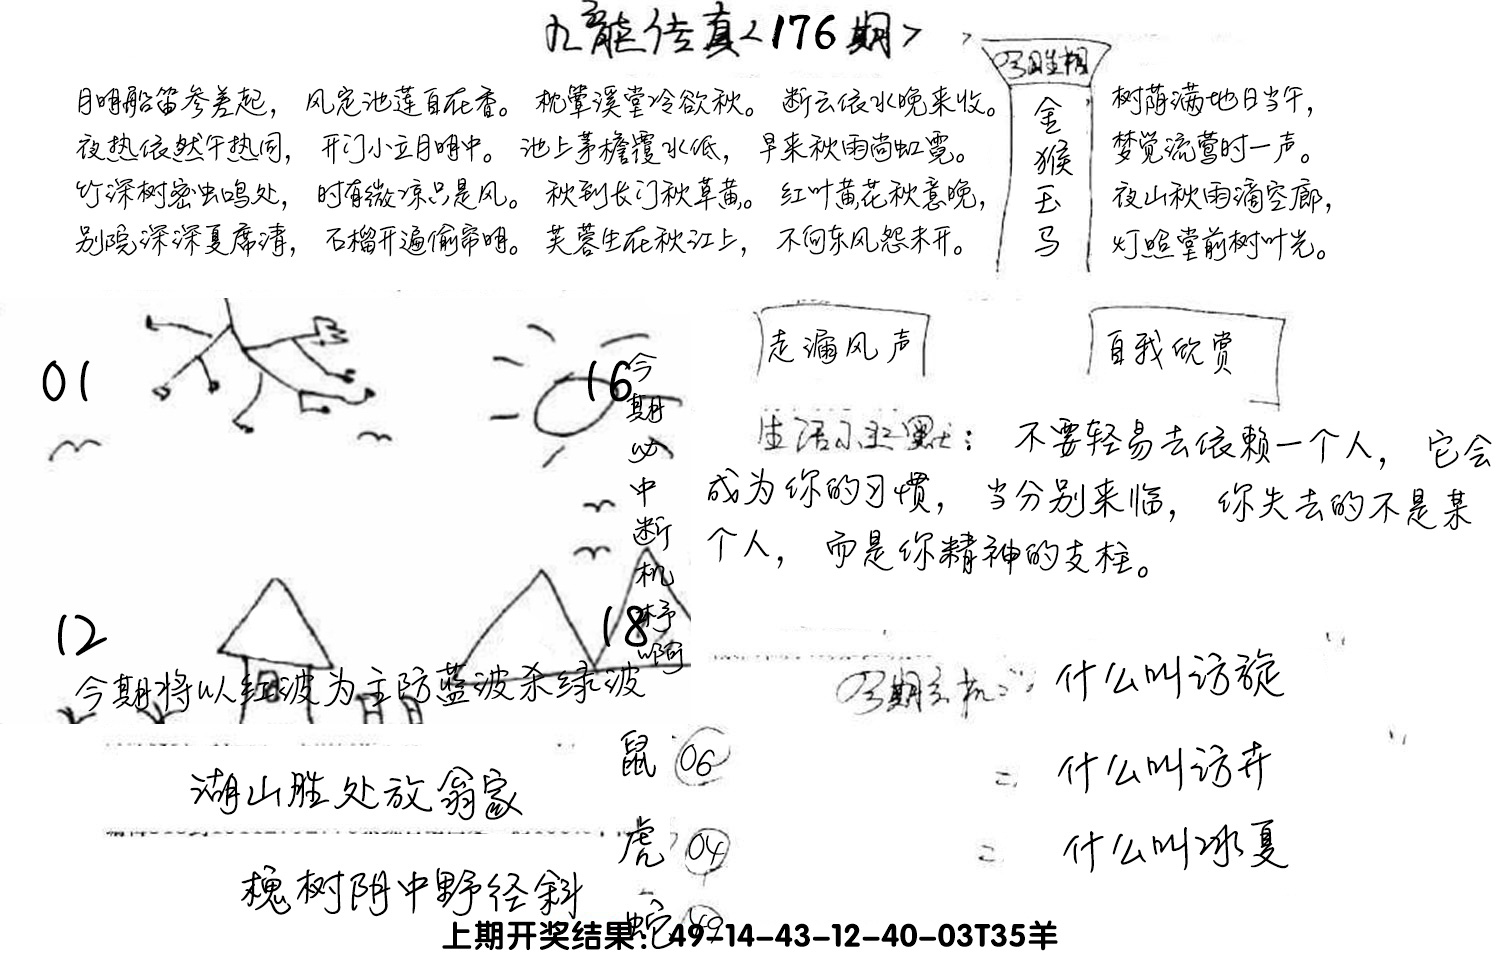 九龙传真<176期>
今期生相
金猴玉马
月明船笛参差起， 风定池莲自在香。 枕簟溪堂冷欲秋。 断云依水晚来收。 树荫满地日当午，
夜热依然午热同， 开门小立月明中。 池上茅檐覆水低， 早来秋雨尚虹霓。 梦觉流莺时一声。
竹深树密虫鸣处， 时有微凉只是风。 秋到长门秋草黄。 红叶黄花秋意晚， 夜山秋雨滴空廊，
别院深深夏席清， 石榴开遍偷帘明。 芙蓉生在秋江上， 不向东风怨未开。 灯照堂前树叶光。
走漏风声
自我欣赏
01
16
今期必中断机杼啊
12
18
今期将以红波为主防蓝波杀绿波
不要轻易去依赖一个人， 它会
成为你的习惯， 当分别来临， 你失去的不是某
个人， 而是你精神的支柱。
今期玄机
什么叫访旋
什么叫访卉
什么叫冰夏
鼠 06
虎 04
蛇 49
湖山胜处放翁家
槐树阴中野径斜
上期开奖结果：49-14-43-12-40-03T35羊